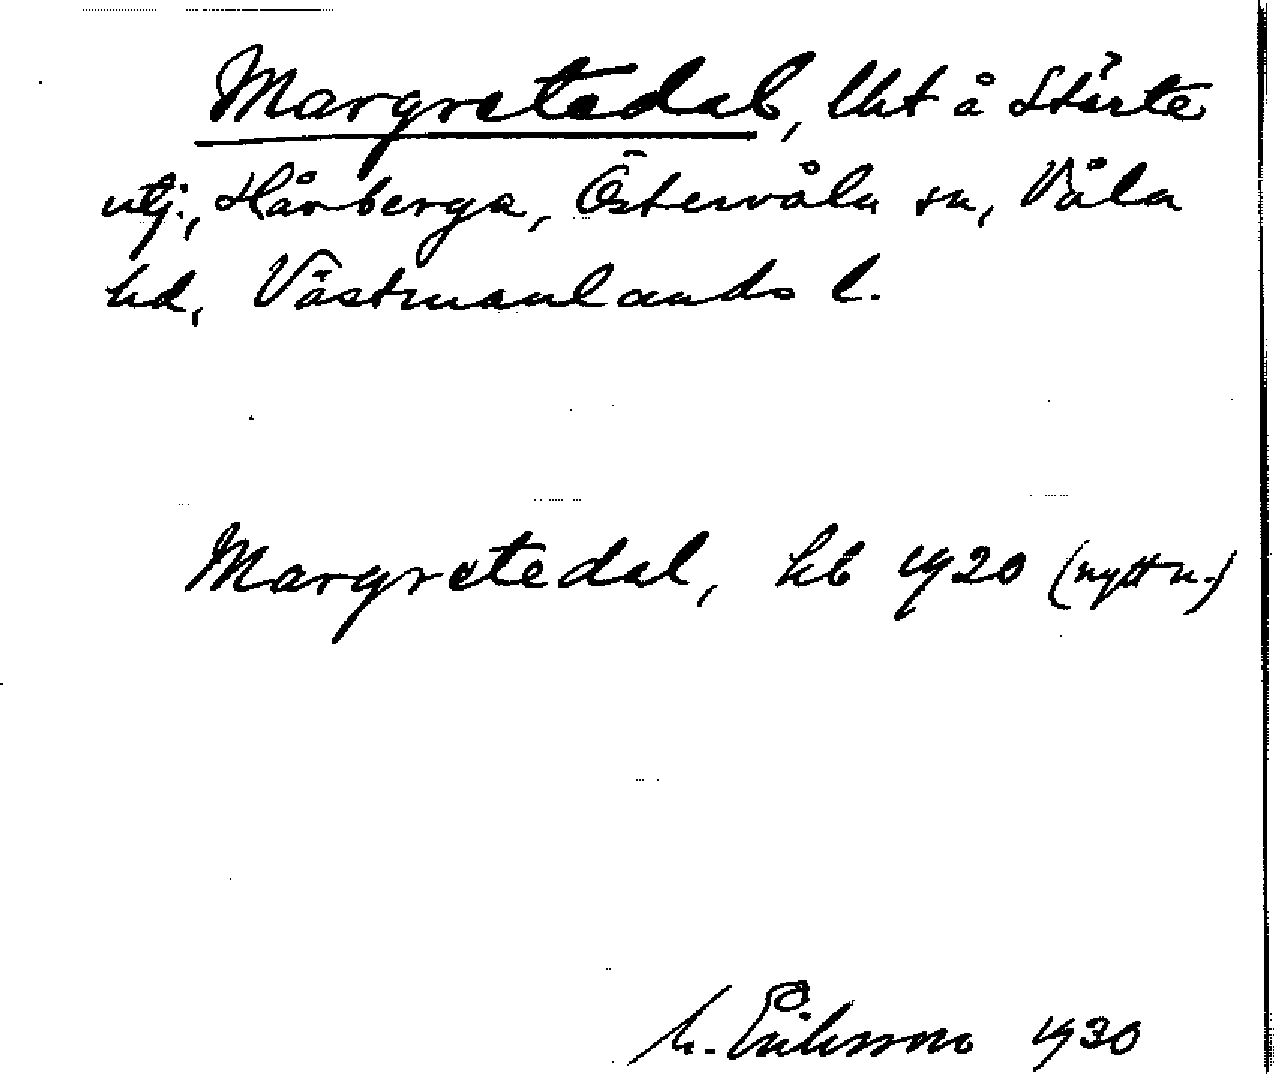 Margretedal, lht å Störte
utj., Hårberga, Östervåla sn, Våla
hd, Västmanlands l.
Margretedal, hb 1920 (nytt n.)
M. Eriksson 1930